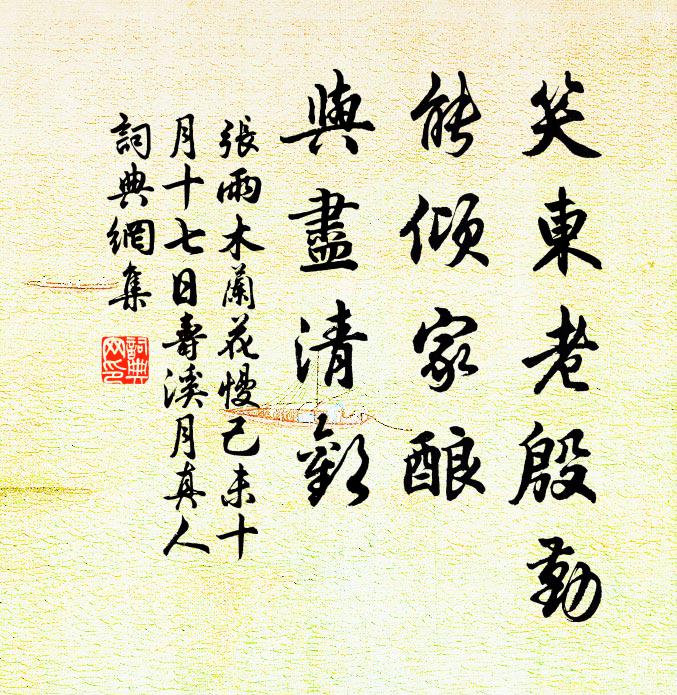 笑東老殷勤
能傾家釀
與盡清歡
張雨木蘭花慢己未十
月十七日壽溪月真人
詞典網集
詞典網印